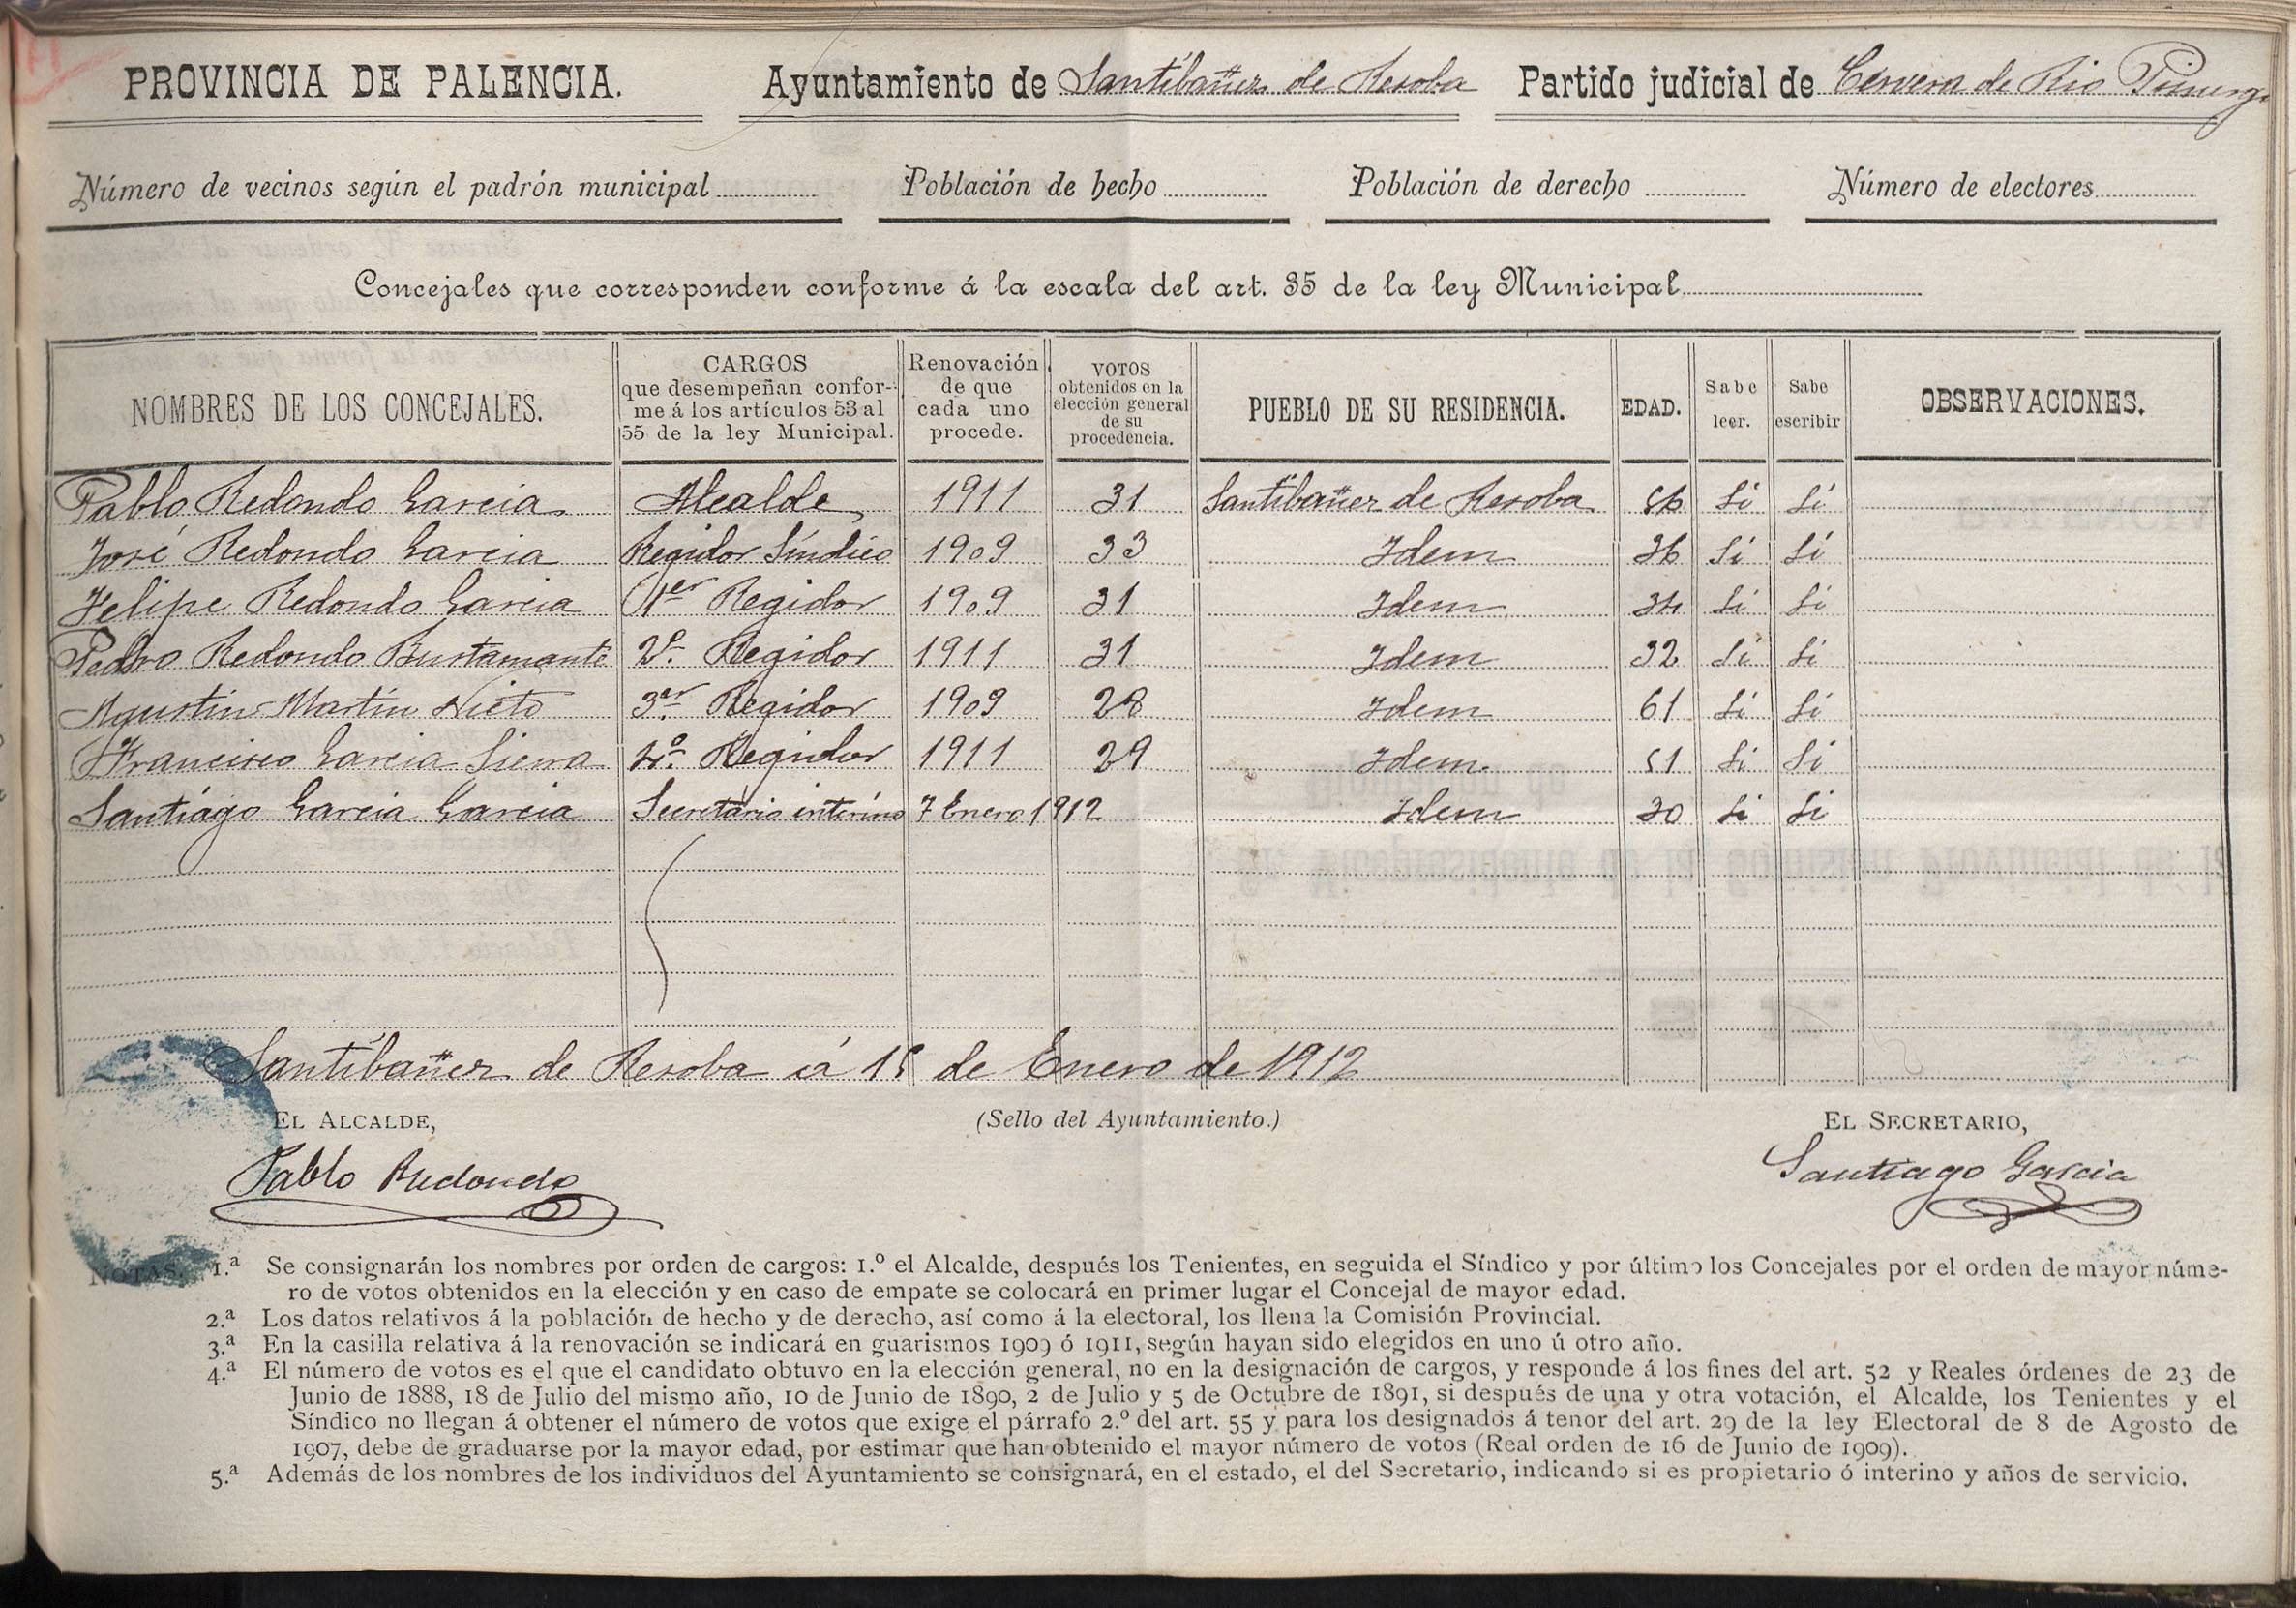 PROVINCIA DE PALENCIA. Ayuntamiento de Santibañez de Resoba Partido judicial de Cervera de Rio Pisuerga
Número de vecinos según el padrón municipal Población de hecho Población de derecho Número de electores
Concejales que corresponden conforme á la escala del art. 35 de la ley Municipal
NOMBRES DE LOS CONCEJALES. CARGOS que desempeñan conforme á los artículos 53 al 55 de la ley Municipal. Renovación de que cada uno procede. VOTOS obtenidos en la elección general de su procedencia. PUEBLO DE SU RESIDENCIA. EDAD. Sabe leer. Sabe escribir OBSERVACIONES.
Pablo Redondo Garcia Alcalde 1911 31 Santibañez de Resoba 56 Si Si
José Redondo Garcia Regidor Síndico 1909 33 Idem 36 Si Si
Felipe Redondo Garcia 1er Regidor 1909 31 Idem 34 Si Si
Pedro Redondo Bustamante 2º. Regidor 1911 31 Idem 32 Si Si
Agustin Martin Nieto 3er. Regidor 1909 28 Idem 61 Si Si
Francisco Garcia Sierra 4º. Regidor 1911 29 Idem 51 Si Si
Santiago Garcia Garcia Secretario interino 7 Enero 1912 Idem 30 Si Si
Santibañez de Resoba á 15 de Enero de 1912
EL ALCALDE, (Sello del Ayuntamiento.) EL SECRETARIO,
Pablo Redondo Santiago Garcia
NOTAS. 1.ª Se consignarán los nombres por orden de cargos: 1.º el Alcalde, después los Tenientes, en seguida el Síndico y por último los Concejales por el orden de mayor núme-
ro de votos obtenidos en la elección y en caso de empate se colocará en primer lugar el Concejal de mayor edad.
2.ª Los datos relativos á la población de hecho y de derecho, así como á la electoral, los llena la Comisión Provincial.
3.ª En la casilla relativa á la renovación se indicará en guarismos 1909 ó 1911, según hayan sido elegidos en uno ú otro año.
4.ª El número de votos es el que el candidato obtuvo en la elección general, no en la designación de cargos, y responde á los fines del art. 52 y Reales órdenes de 23 de
Junio de 1888, 18 de Julio del mismo año, 10 de Junio de 1890, 2 de Julio y 5 de Octubre de 1891, si después de una y otra votación, el Alcalde, los Tenientes y el
Síndico no llegan á obtener el número de votos que exige el párrafo 2.º del art. 55 y para los designados á tenor del art. 29 de la ley Electoral de 8 de Agosto de
1907, debe de graduarse por la mayor edad, por estimar que han obtenido el mayor número de votos (Real orden de 16 de Junio de 1909).
5.ª Además de los nombres de los individuos del Ayuntamiento se consignará, en el estado, el del Secretario, indicando si es propietario ó interino y años de servicio.